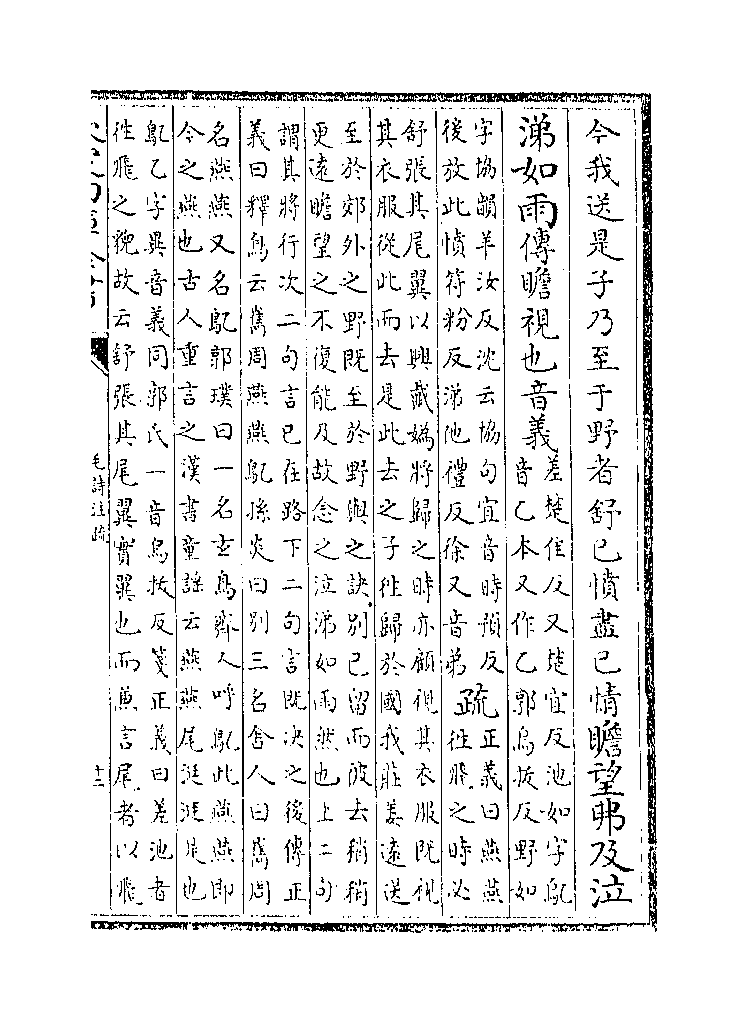 今我送是子乃至于野者舒已憤盡已情瞻望弗及泣
涕如雨傳瞻視也音義
差楚佳反又楚宜反池如字鳦
音乙本又作乙郭烏拔反野如
字協韻羊汝反沈云協句宜音時預反
後放此憤符粉反涕他禮反徐又音弟
疏
正義曰燕燕
往飛之時必
舒張其尾翼以興戴嬀將歸之時亦顧視其衣服既視
其衣服從此而去是此去之子往歸於國我莊姜遠送
至於郊外之野既至於野與之訣別已留而彼去稍稍
更遠瞻望之不復能及故念之泣涕如雨然也上二句
謂其將行次二句言已在路下二句言既决之後傳正
義曰釋鳥云嶲周燕燕鳦孫炎曰別三名舍人曰嶲周
名燕燕又名鳦郭璞曰一名玄鳥齊人呼鳦此燕燕即
今之燕也古人重言之漢書童謡云燕燕尾涎涎是也
鳦乙字異音義同郭氏一音烏拔反箋正義曰差池者
往飛之貌故云舒張其尾翼實翼也而兼言尾者以飛
毛詩注疏
十三